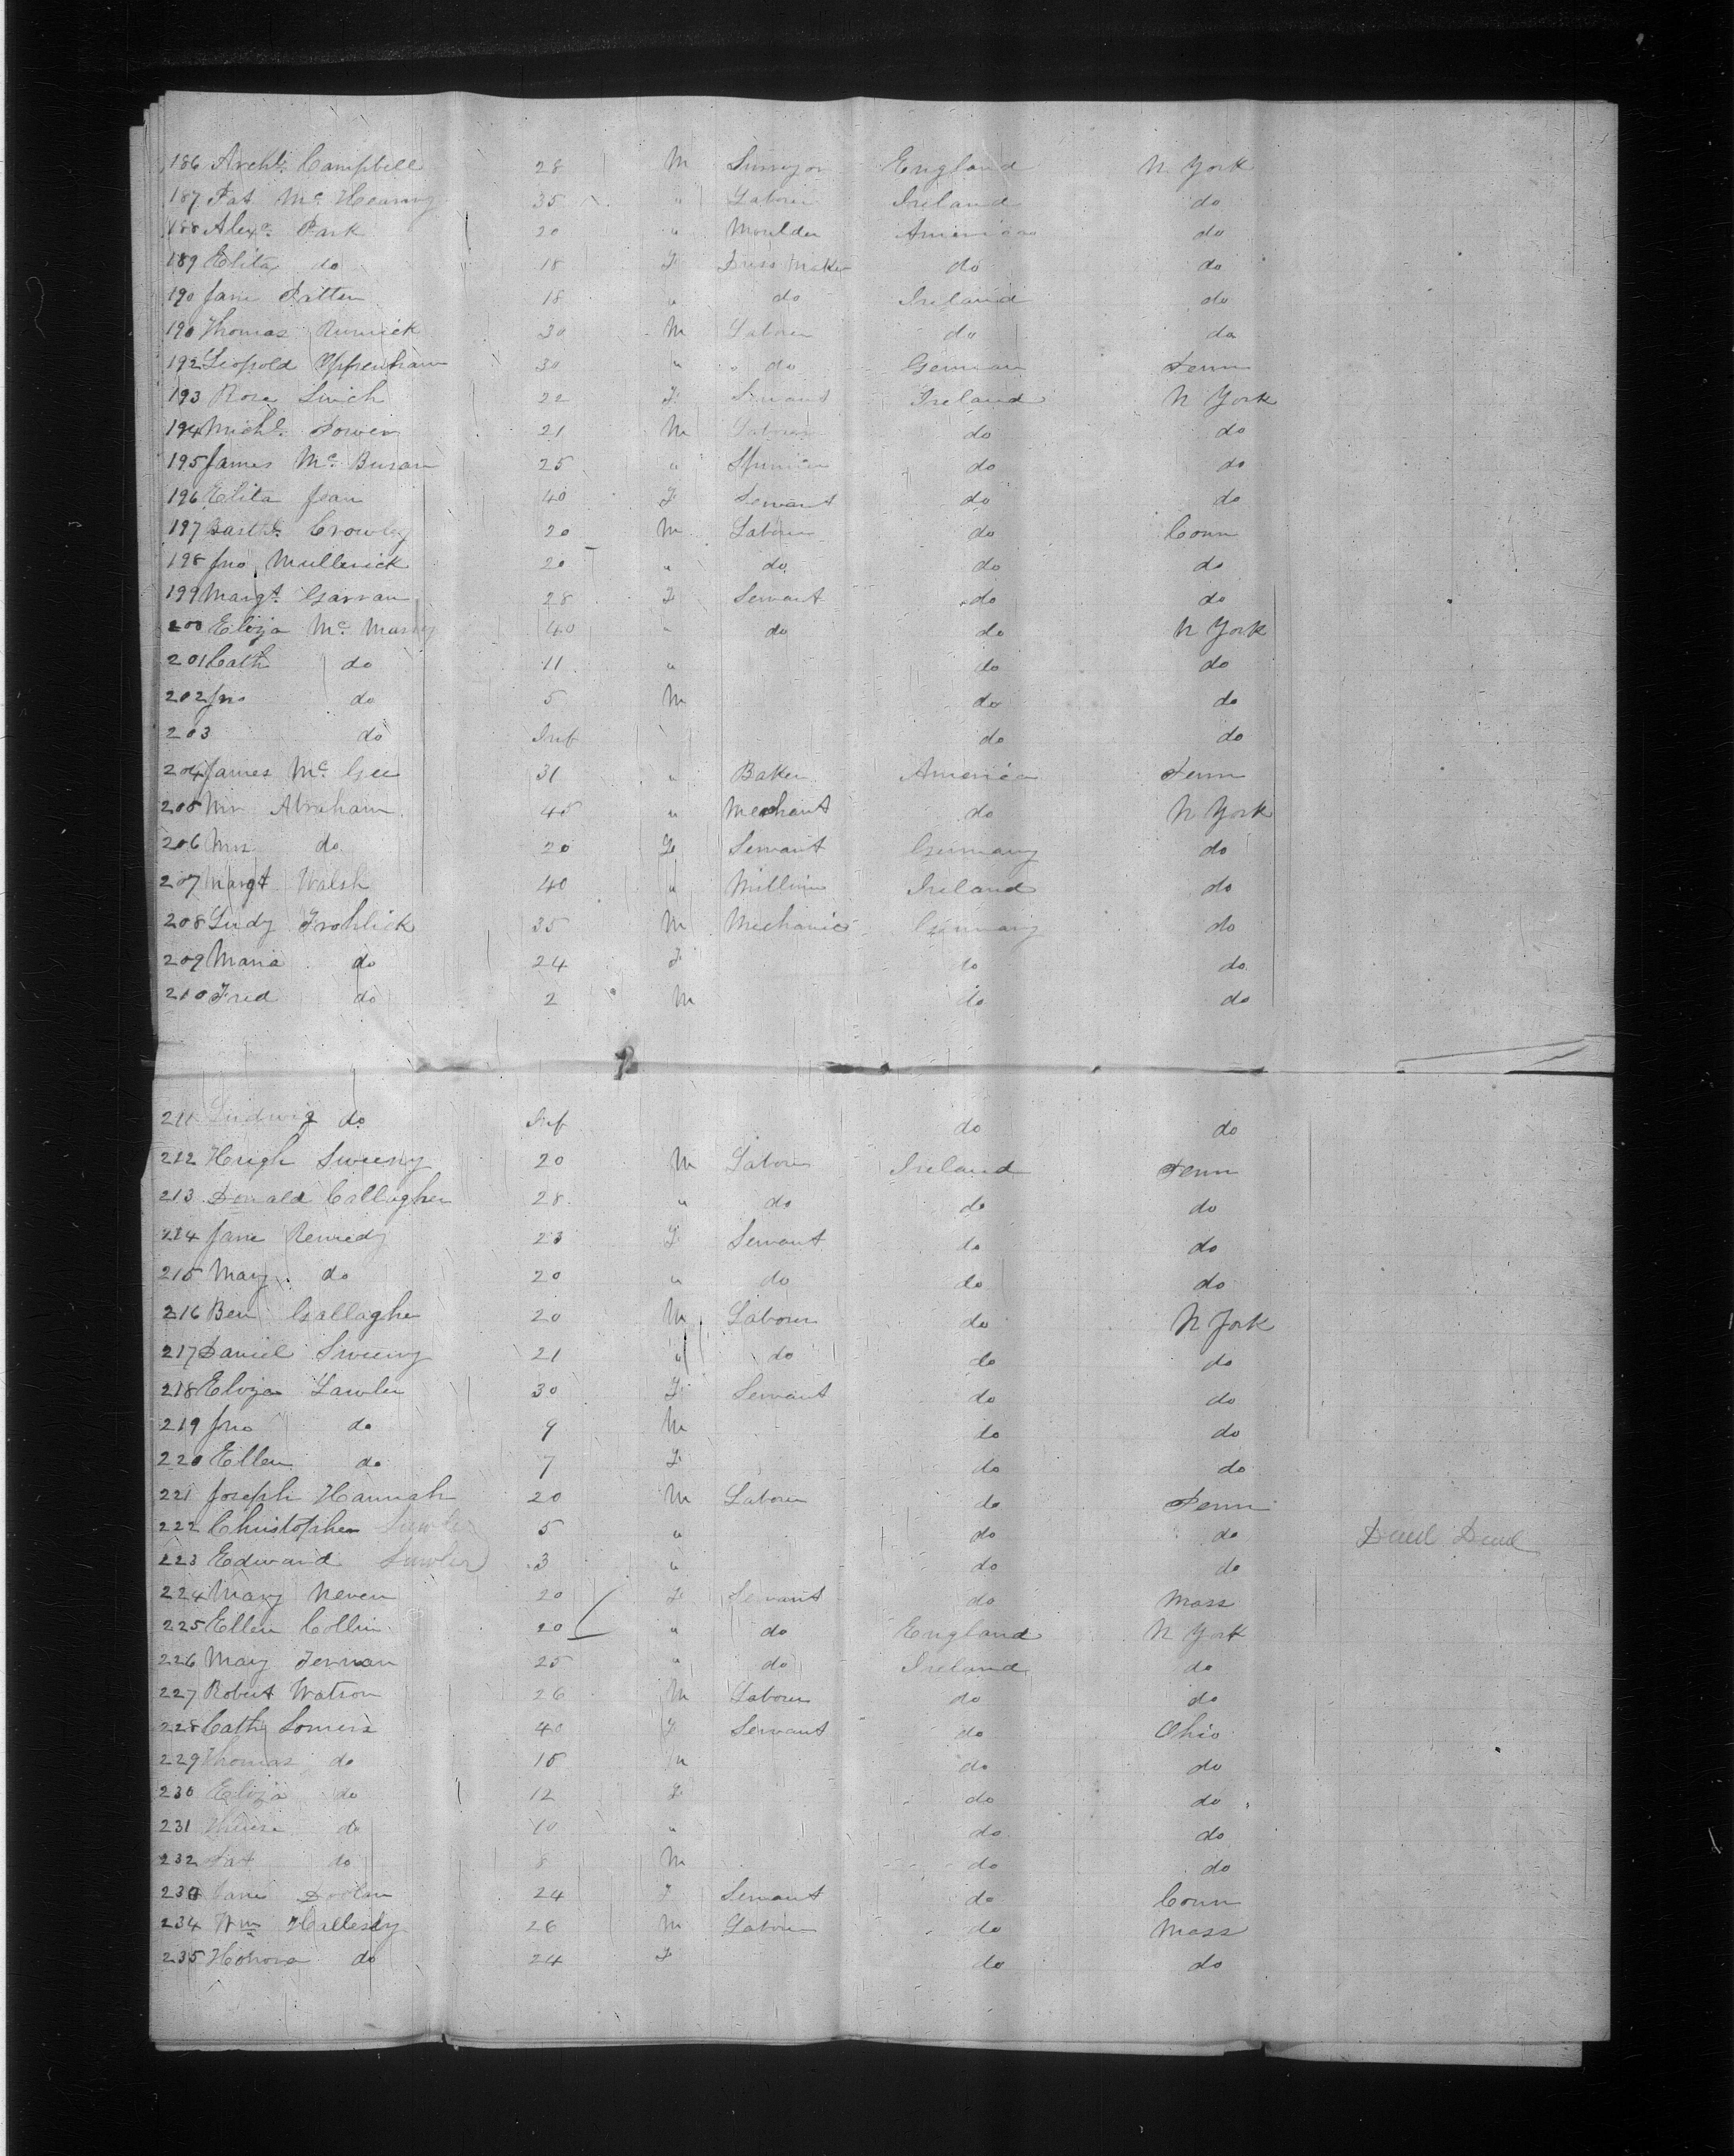 186 Archd. Campbell 28 M Surveyor England N York
187 Pat Mc Hearny 35 " Laborer Ireland do
188 Alexr. Park 20 " Moulder America do
189 Eliza do 18 F Dress Maker do do
190 Jane Patten 18 " do Ireland do
190 Thomas 30 M Laborer do do
192 Leopold Oppenham 30 " do German Penn
193 Rose 22 F Servant Ireland N York
194 Michl. Power 21 M Laborer do do
195 James Mc 25 " do do
196 Eliza Jean 40 F Servant do do
197 Barth. Crowley 20 M Laborer do Conn
198 Jno Mullerick 20 " do do do
199 Margt. Garran 28 F Servant do do
200 Eliza Mc 40 " do do N York
201 Cath do 11 " do do
202 Jno do 5 M do do
203 do Inf do do
204 James Mc Gee 31 " Baker America Penn
205 Mr Abraham 45 " Merchant do N York
206 Mrs do 20 F Servant Germany do
207 Margt Walsh 40 " Milliner Ireland do
208 Ludg Frohlick 35 M Mechanic Germany do
209 Maria do 24 F do do
210 Fred do 2 M do do
211 Ludwig do Inf do do
212 Hugh Sweeny 20 M Laborer Ireland Penn
213 Donald Callagher 28 " do do do
214 Jane Kennedy 23 F Servant do do
215 Mary do 20 " do do do
216 Ben Gallagher 20 M Laborer do N York
217 Daniel Sweeny 21 " do do do
218 Eliza Lawler 30 F Servant do do
219 Jno do 9 M do do
220 Ellen do 7 F do do
221 Joseph Hannah 20 M Laborer do Penn
222 Christopher Lawler 5 " do do
223 Edward Lawler 3 " do do
224 Mary Neven 20 F Servant do Mass
225 Ellen Collin 20 " do England N York
226 Mary 25 " do Ireland do
227 Robert Watson 26 M Laborer do do
228 Cath Somers 40 F Servant do Ohio
229 Thomas do 15 M do do
230 Eliza do 12 F do do
231 do 10 " do do
232 Pat do 8 M do do
233 Jane Doolan 24 F Servant do Conn
234 Wm 26 M Laborer do Mass
235 Honora do 24 F do do